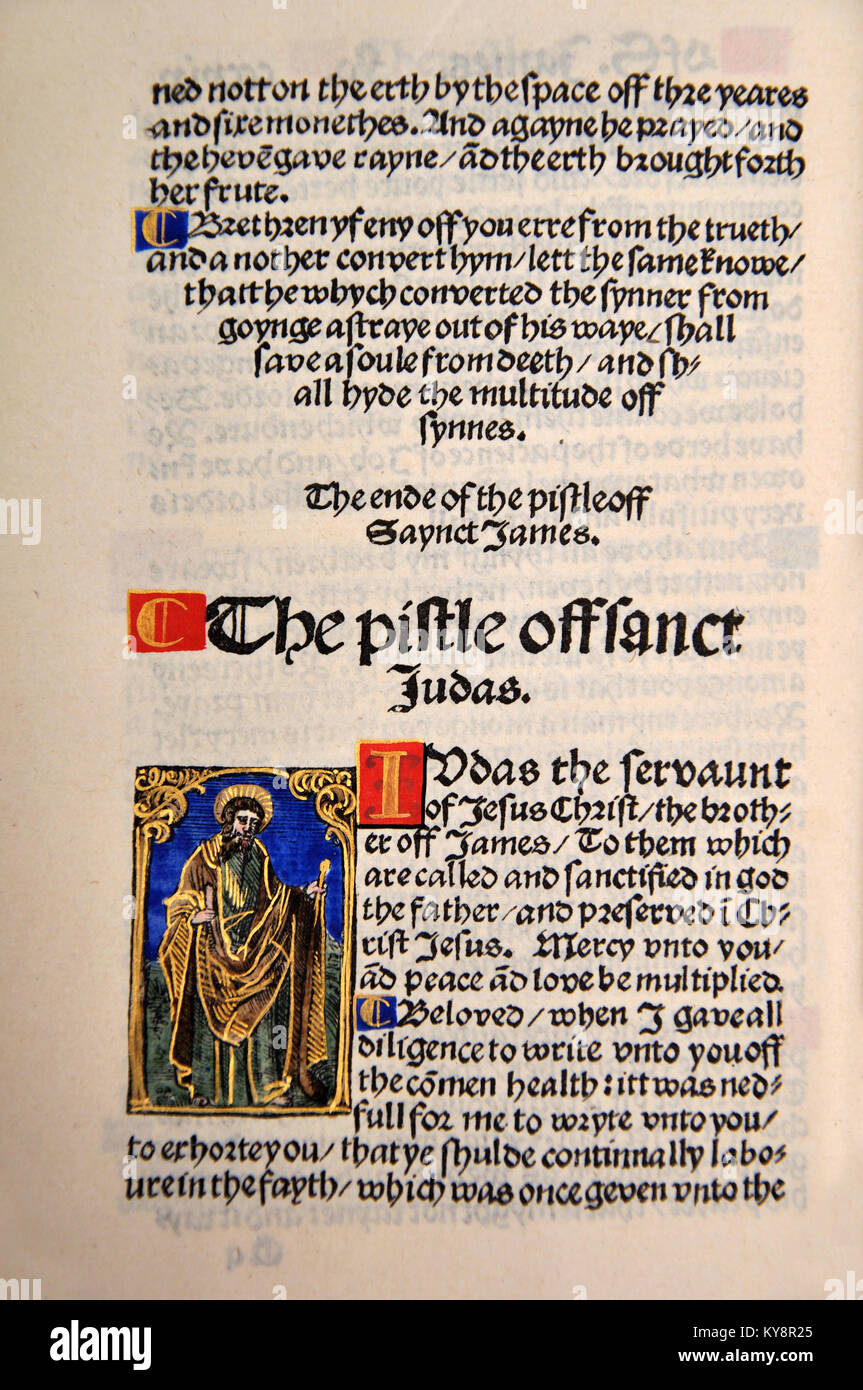 ned nott on the erth by the space off thre yeares
and sixe monethes. And agayne he prayed/ and
the hevē gave rayne/ ād the erth brought forth
her frute.
C Brethren yf eny off you erre from the trueth/
and a nother convert hym/ lett the same knowe/
thatt he whych converted the synner from
goynge astraye out of his waye/ shall
save a soule from deeth/ and sh⸗
all hyde the multitude off
synnes.
The ende of the pistle off
Saynct James.
C The pistle off sanct
Judas.
IVdas the servaunt
of Jesus Christ/ the broth⸗
er off James/ To them which
are called and sanctified in god
the father/ and preserved ī Ch⸗
rist Jesus. Mercy vnto you/
ād peace ād love be multiplied.
C Beloved/ when I gave all
diligence to write vnto you off
the cōmen health: itt was ned⸗
full for me to wryte vnto you/
to exhorte you/ that ye shulde continnally labo⸗
ure in the fayth/ which was once geven vnto the
alamy
Image ID: KY8R25
www.alamy.com